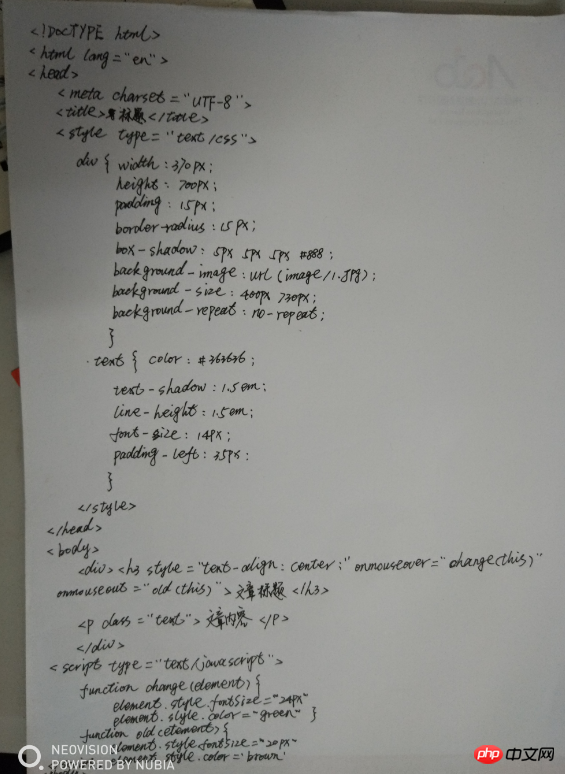 <!DOCTYPE html>
<html lang="en">
<head>
<meta charset="UTF-8">
<title>标题</title>
<style type="text/css">
div { width:370px;
height:700px;
padding:15px;
border-radius:15px;
box-shadow:5px 5px 5px #888;
background-image:url(image/1.jpg);
background-size:400px 730px;
background-repeat:no-repeat;
}
.text { color:#363636;
text-shadow:1.5em;
line-height:1.5em;
font-size:14px;
padding-left:35px:
}
</style>
</head>
<body>
<div><h3 style="text-align:center;" onmouseover="change(this)"
onmouseout="old(this)">文章标题</h3>
<p class="text">文章内容</p>
</div>
<script type="text/javascript">
function change(element){
element.style.fontSize="24px"
element.style.color="green" }
function old(element){
element.style.fontSize="20px"
style.color='brown'
NEOVISION
POWERED BY NUBIA
php 中文网